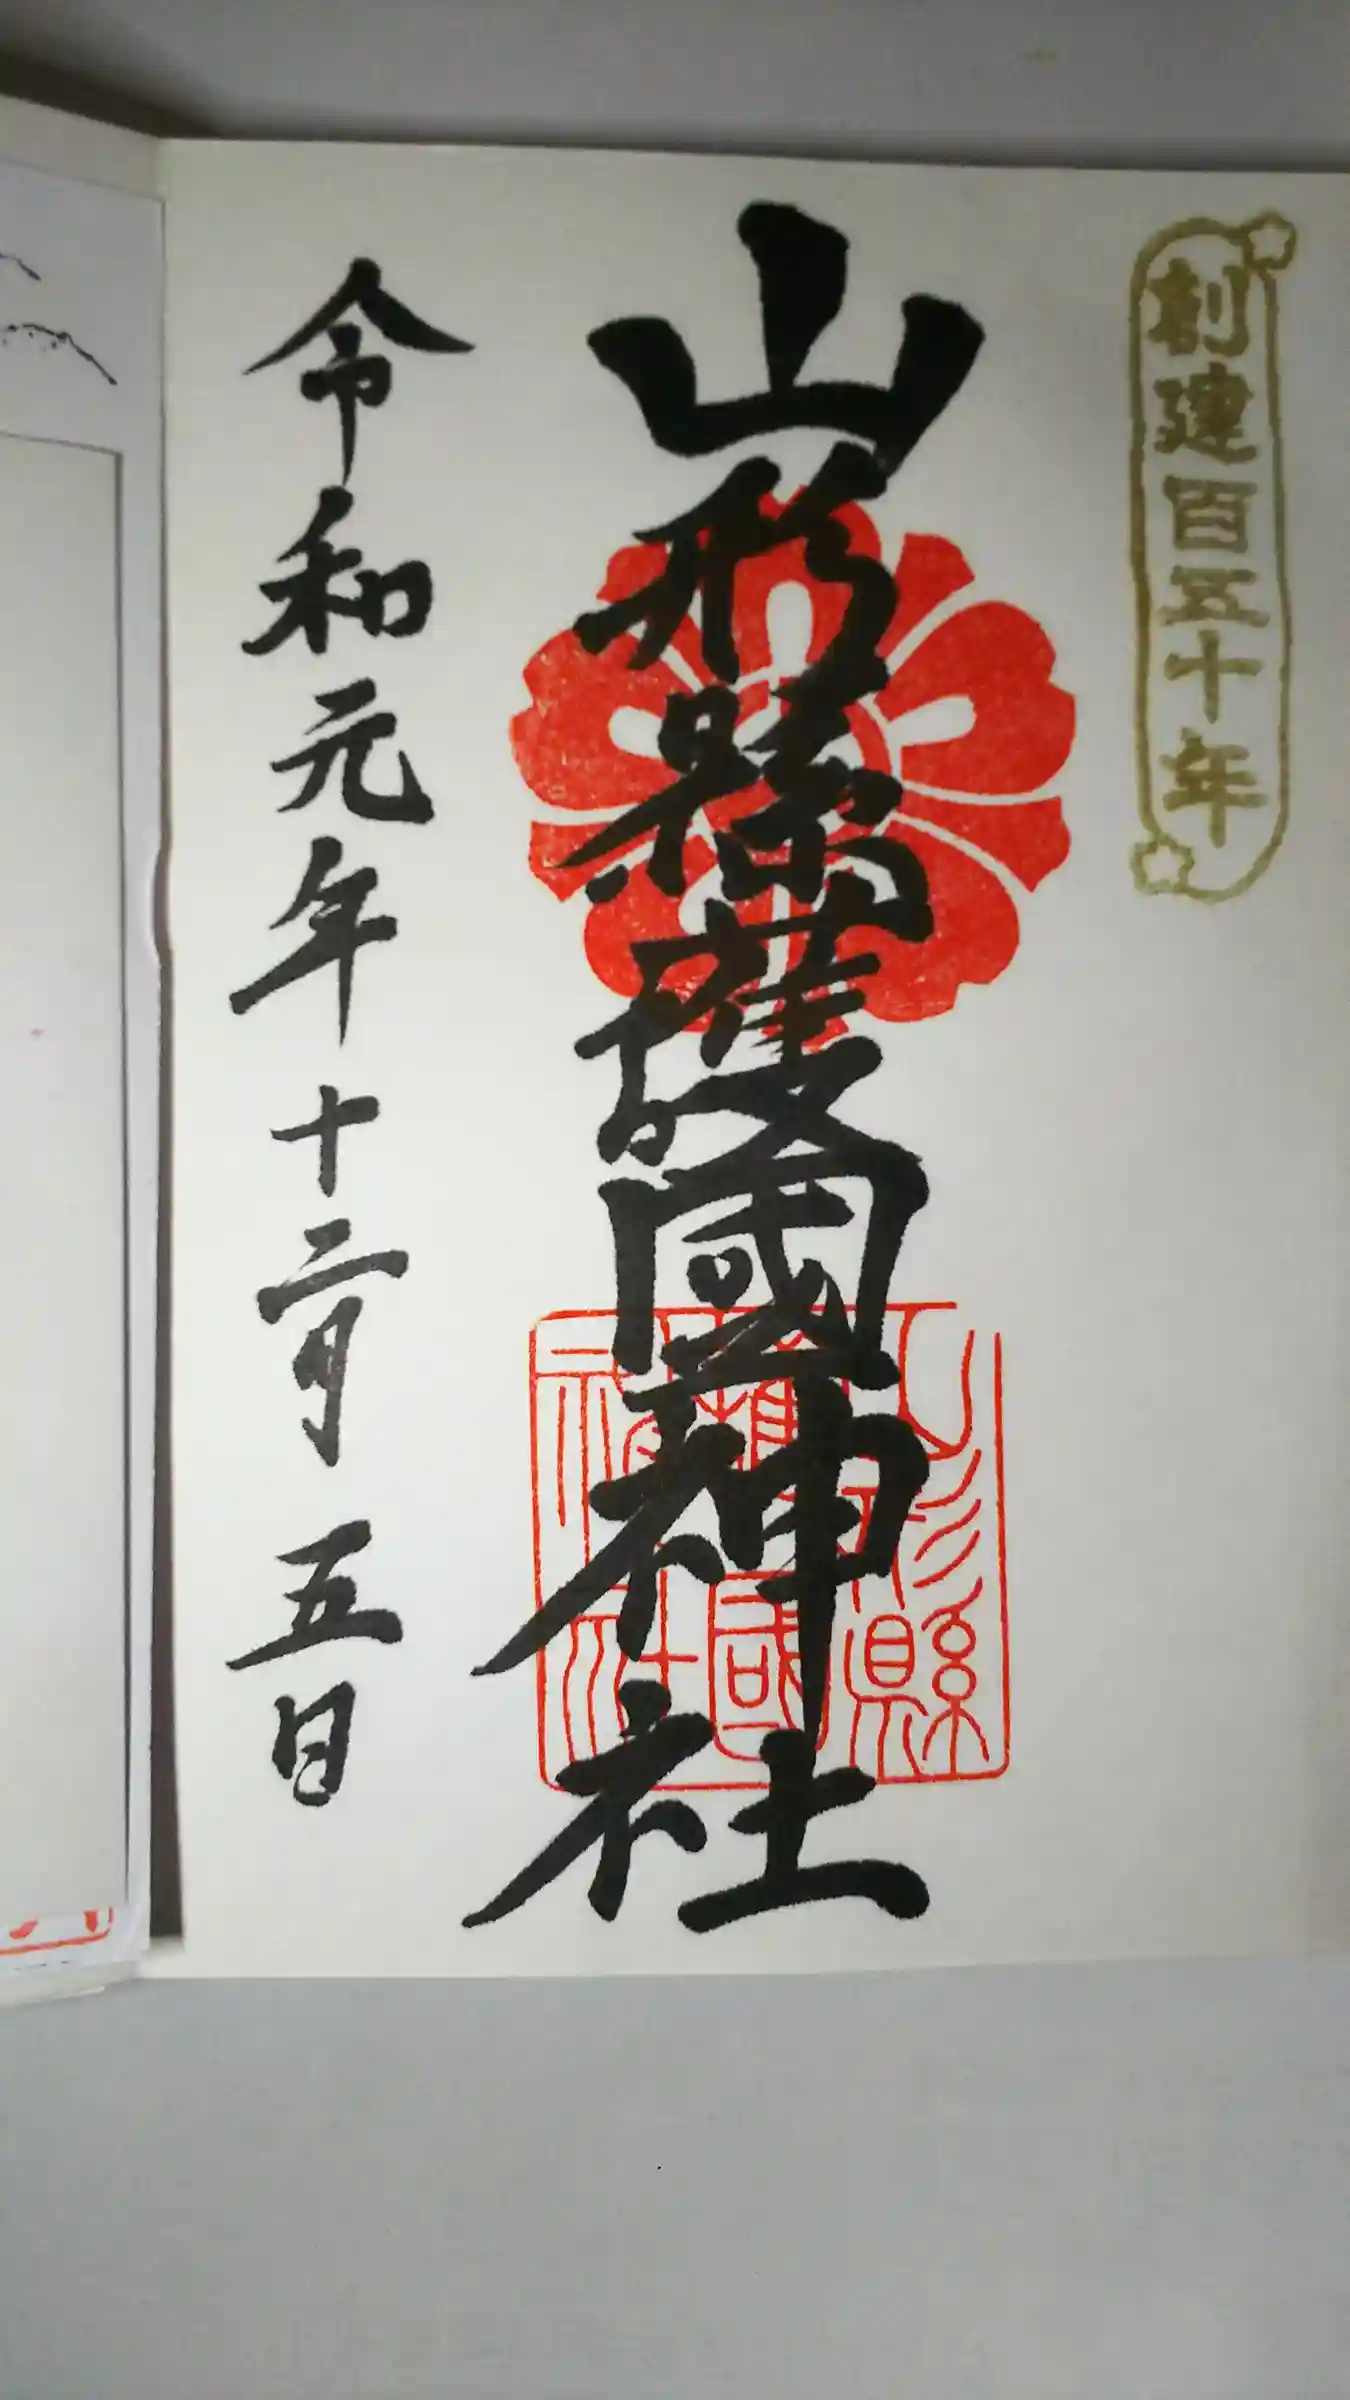 創建百五十年
山形縣護國神社
山形縣
護國
神社
令和元年十二月五日